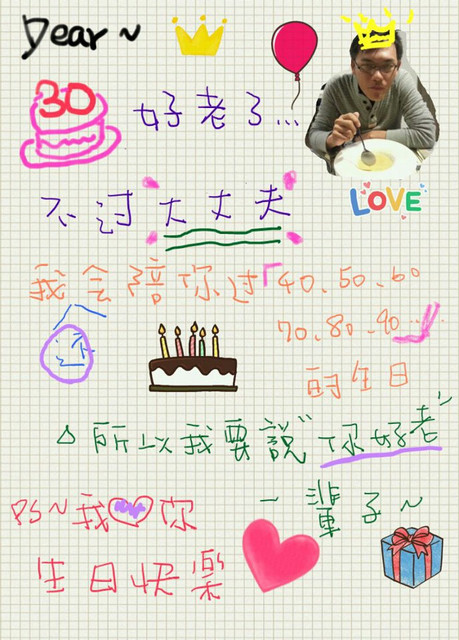 Dear~
30
好老了...
不过大丈夫
LOVE
我会陪你过「40、50、60
70、80、90...」
的生日
△所以我要説"你好老"
一輩子~
PS~我你
生日快樂